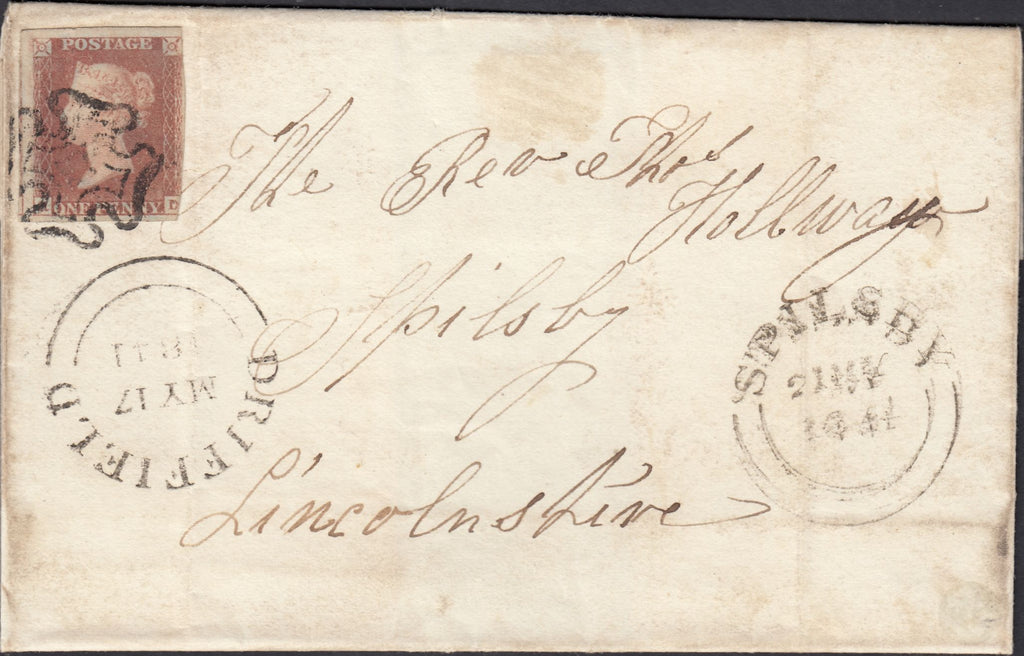 POSTAGE
ONE PENNY D
The Rev Thos
Hollway
Spilsby
Lincolnshire
DRIFFIELD
MY 17
1841
SPILSBY
1841